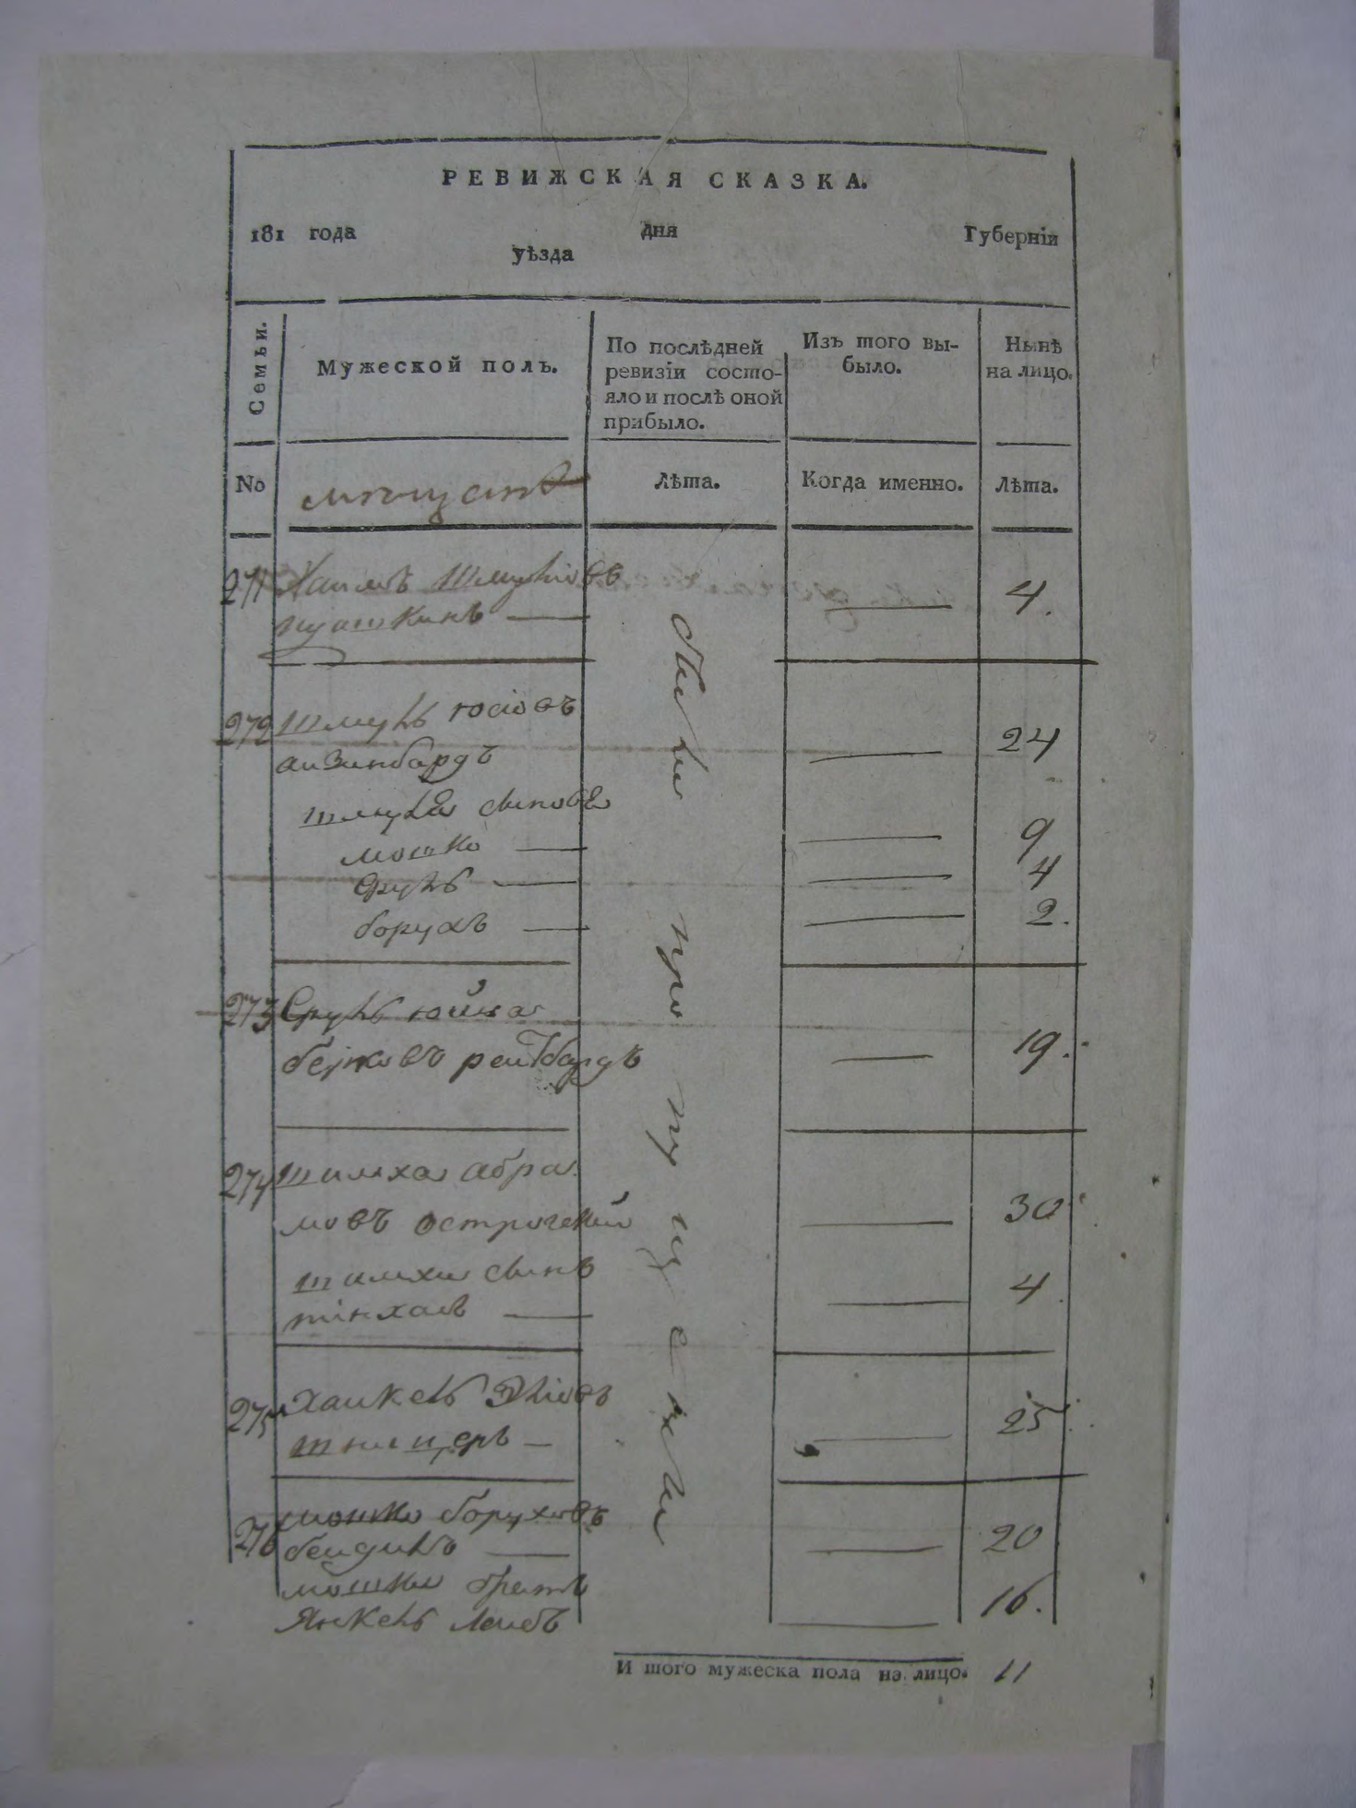 РЕВИЖСКАЯ СКАЗКА.
181 года дня Губерніи
уѣзда
Семьи.
Мужеской полъ.
По послѣдней ревизіи состояло и послѣ оной прибыло.
Изъ того выбыло.
Нынѣ на лицо.
No
мещане
Лѣта.
Когда именно.
Лѣта.
271 Хаимъ Шмулiовъ
пушкинъ — — 4.
были пропущены
272 шмуль iосiовъ
аизинбардъ — 24
шмуля сыновья
мошко — — 9
Сруль — — 4
борухъ — — 2.
273 Сруль
— 19.
274 шимха абра
мовъ острогский — 30
шимхи сынъ
пинхасъ — — 4
275 хаикель
— — 25
276 мошко боруховъ
— — 20
мошки братъ
Янкель Леибъ — 16.
И того мужеска пола на лицо. 11